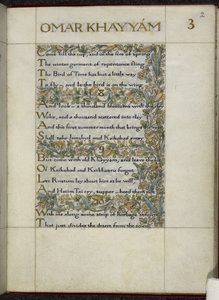 OMAR KHAYYÁM
3
2
Come fill the cup, and in the fire of spring
The winter garment of repentance fling
The Bird of Time has but a little way
To fly, and lo the bird is on the wing
8
And look a thousand blossoms with the day
Woke, and a thousand scattered into clay
And this first summer month that brings
Shall take Jamshyd and Kaikobad away
9
But come with old Khayyám, and leave the
Of Kaikobad and Kaikhosru forgot
Let Rustum lay about him as he will
And Hatim Tai cry, supper heed them
With me along some strip of herbage
That just divides the desert from the sown